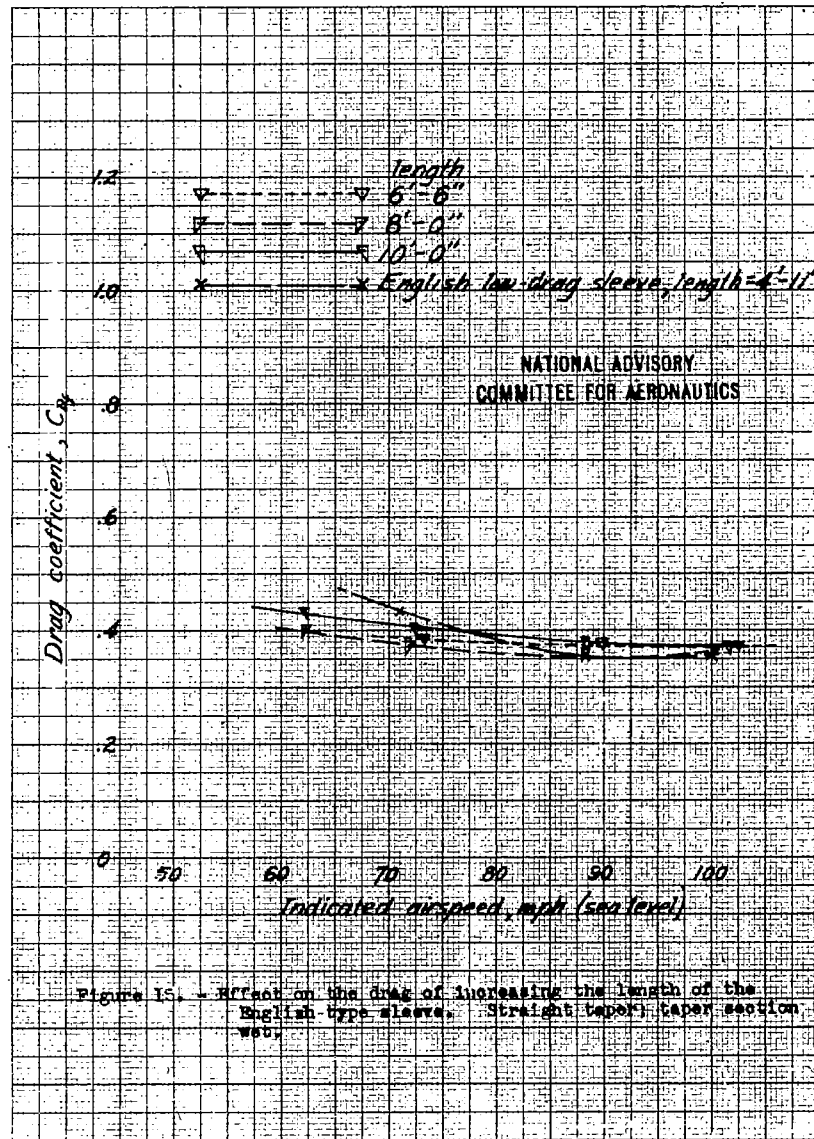 length
1.2
6'-6"
8'-0"
10'-0"
1.0
English low-drag sleeve, length=4'-11"
NATIONAL ADVISORY
COMMITTEE FOR AERONAUTICS
.8
Drag coefficient,
.6
.4
.2
0
50 60 70 80 90 100
Indicated airspeed, mph (sea level)
Figure 15. - Effect on the drag of increasing the length of the
English-type sleeve. Straight taper; taper section
wet.